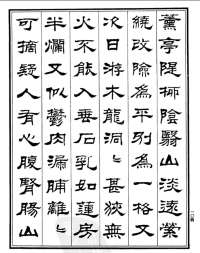 薰亭隄栁陰翳山淡遠縈
繞改險為平別為一格又
次日游木龍洞〻甚狹無
火不能入垂石乳如蓮房
半爛又似鬱肉漏脯離〻
可摘疑人有心腹腎腸山